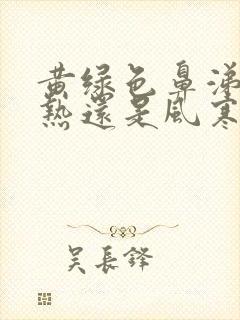 黄绿色鼻涕
热还是风寒
吴长锋